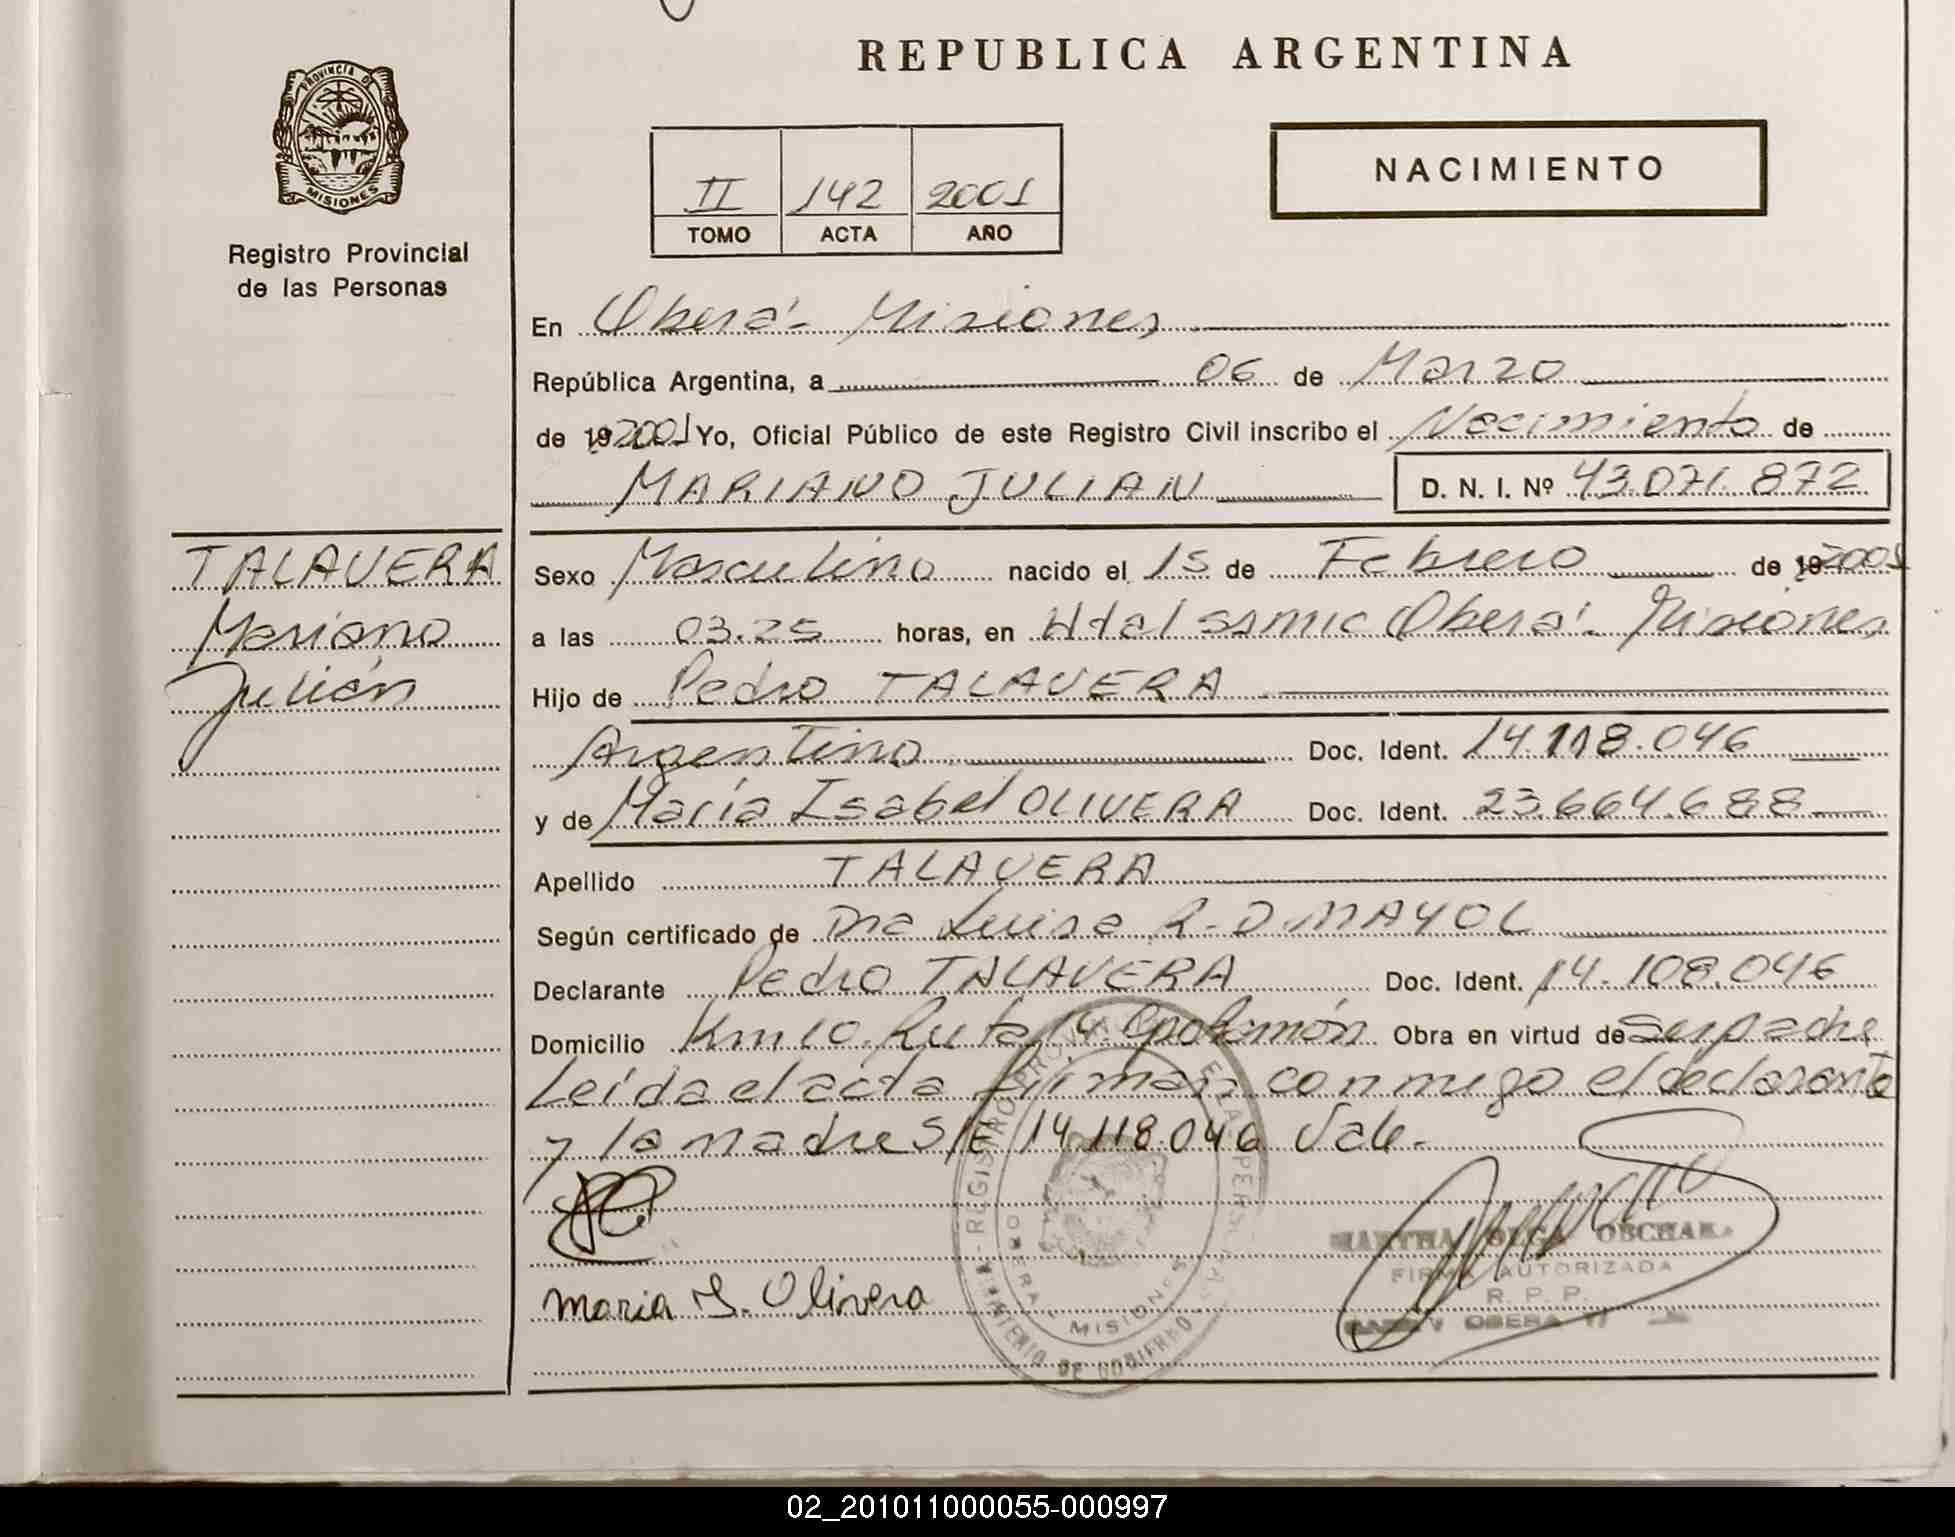 REPUBLICA ARGENTINA
PROVINCIA DE
MISIONES
Registro Provincial
de las Personas
II 142 2001
TOMO ACTA AÑO
NACIMIENTO
En Oberá - Misiones
República Argentina, a 06 de Marzo
de 19 2001 Yo, Oficial Público de este Registro Civil inscribo el Nacimiento de
MARIANO JULIAN D. N. I. Nº 43.071.872
TALAVERA
Mariano
Julián
Sexo Masculino nacido el 15 de Febrero de 19 2001
a las 03.25 horas, en Htal SSMIC Oberá - Misiones
Hijo de Pedro TALAVERA
Argentino Doc. Ident. 14.118.046
y de María Isabel OLIVERA Doc. Ident. 23.664.688
Apellido TALAVERA
Según certificado de Dra Luisa R. D. MAYOL
Declarante Pedro TALAVERA Doc. Ident. 14.108.046
Domicilio Km 10. Ruta 14. Obra en virtud de Ser padre
Leída el acta firman conmigo el declarante
y la madre S/E 14.118.046 Vale.
REGISTRO PROVINCIAL DE LAS PERSONAS
MINISTERIO DE GOBIERNO
OBERA MISIONES
maria I. Olivera
MARTHA OLGA
FIRMA AUTORIZADA
R. P. P.
OBERA
02_201011000055-000997